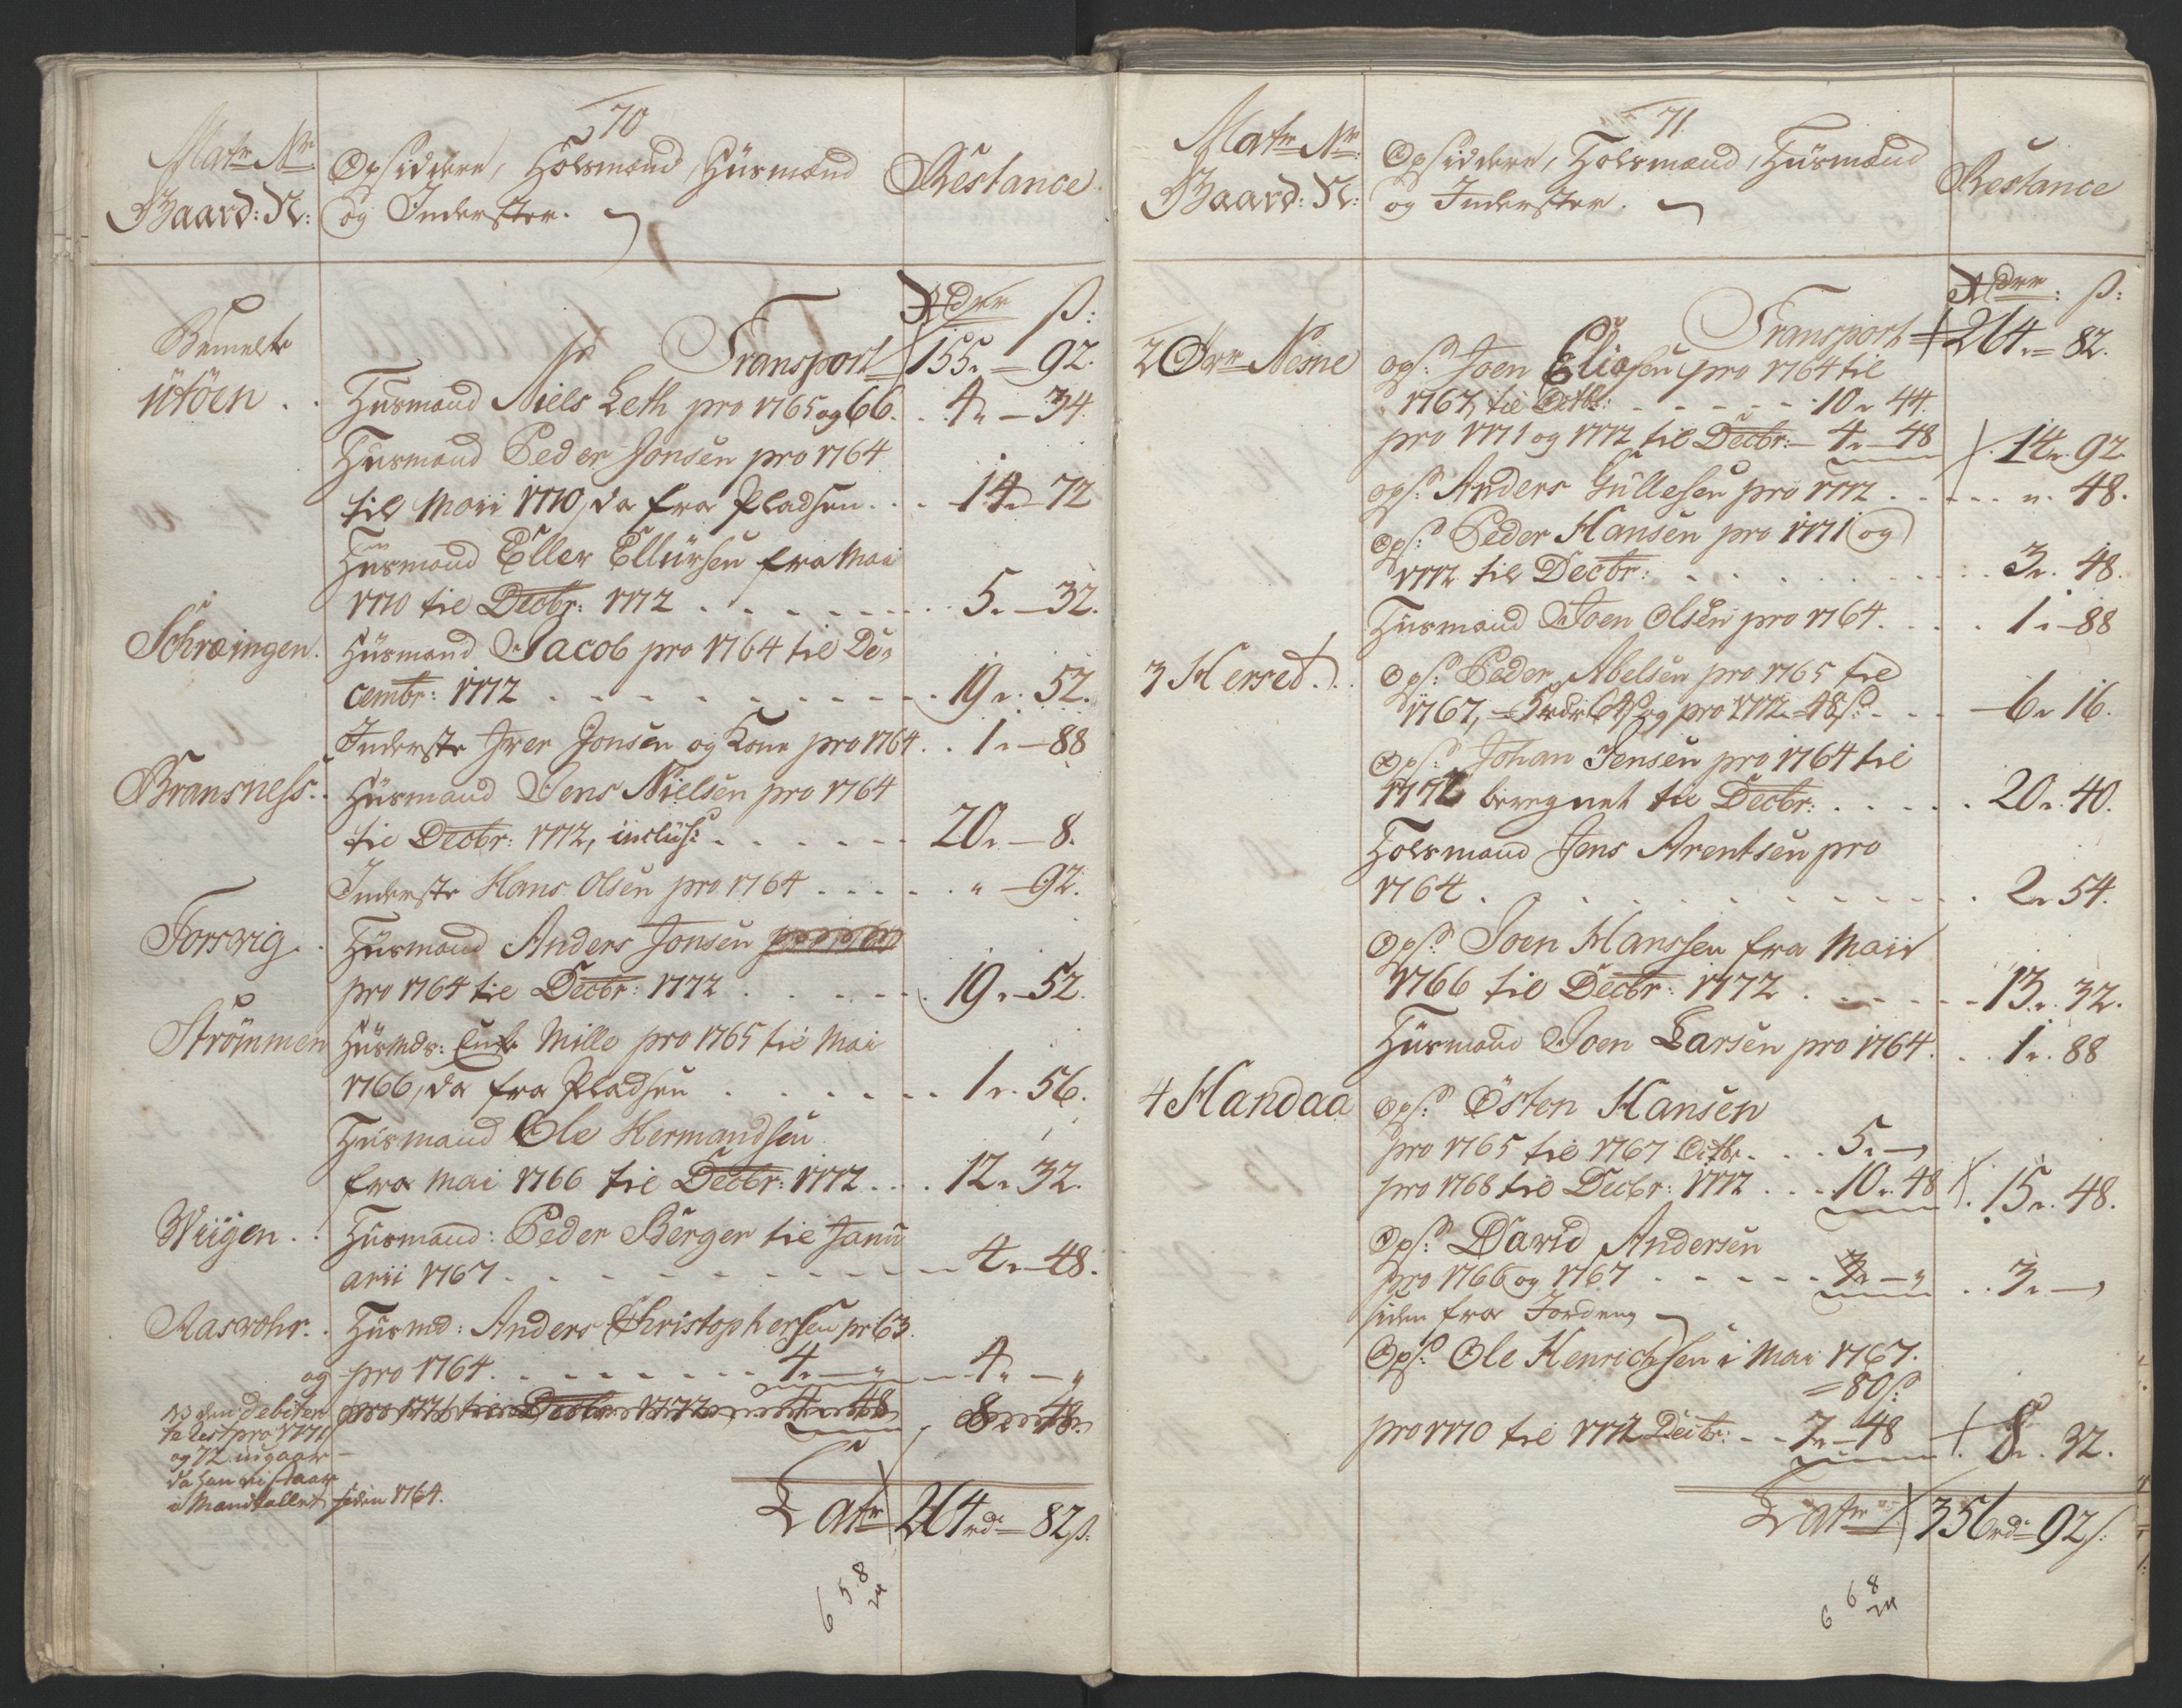 70
Matr Nr: Opsiddere, Holsmænd, Huusmænd Restance
Gaard: N: og Inderster.
Rdrr ß:
Transport 155 „ 92.
Bemelte
Utöen . . Huusmand Niels Leth pro 1765 og 66. . 4 „ 34.
Huusmand Peder Jonsen pro 1764
til Maii 1770, da fra Pladsen . . . 14 „ 72
Huusmand Eller Ellürsen fra Maii
1770 til Decbr: 1772 . . . . . . 5 „ 32.
Schræingen. Huusmand Jacob pro 1764 til De-
cembr: 1772 . . . . . . 19 „ 52.
Inderste Iver Jonsen og Kone pro 1764. . 1 „ 88
Bransness. . Huusmand Jens Nielsen pro 1764
til Decbr: 1772, inclus: . . . . . 20 „ 8.
Inderste Hans Olsen pro 1764 . . . . . „ 92.
Forsvig. . Huusmand Anders Jonsen
pro 1764 til Decbr: 1772 . . . . . 19 „ 52.
Strömmen Huusmds: Enke Mille pro 1765 til Mai
1766, da fra Pladsen . . . . . . 1 „ 56.
Huusmand Ole Hermandsen
fra Mai 1766 til Decbr: 1772 . . . 12 „ 32.
Wiigen . . Huusmand: Peder Berger til Janu
arii 1767 . . . . . . 4 „ 48.
Aasvohr. . Huusmd: Anders Christophersen pr 63.
og pro 1764 . . . . . . 4 „ „ 4 „ „
pro 1771 til Decbr 1772 4 „ 48 8 „ 48.
N3 den debiter
te Rest pro 1771
og 72 udgaar
da han ei staar
i Mandtallet siden 1764.
Latr 264 rd „ 82 ß.
6 5 8
71.
Matr Nr: Opsiddere, Holsmænd, Huusmænd Restance
Gaard: N: og Inderster.
Rdrr: ß:
Transport 264 „ 82.
2 Örr Nesne ops: Joen Eliasen pro 1764 til
1767, til Octbr: . . . . . 10 „ 44.
pro 1771 og 1772 til Decbr: 4 „ 48 14 „ 92.
ops: Anders Gullesen pro 1772 . . . . . „ 48.
Ops: Peder Hansen pro 1771 og
1772 til Decbr: . . . . . . 3 „ 48.
Huusmand Joen Olsen pro 1764. . . . 1 „ 88
3 Herset. . . Ops: Peder Abelsen pro 1765 til
1767, 5 rdr 64 ß og pro 1772 48 ß: . . . 6 „ 16.
Ops: Johan Jensen pro 1764 til
1772 beregnet til Decbr: . . . . . 20 „ 40.
Holsmand Jens Arentsen pro
1764 . . . . . . 2 „ 54.
Ops: Joen Hanssen fra Maii
1766 til Decbr: 1772 . . . . . 13 „ 32.
Huusmand Joen Larsen pro 1764. . . 1 „ 88
4 Handaa Ops: Östen Hansen
pro 1765 til 1767 Octbr. . . . 5 „ „
pro 1768 til Decbr: 1772 . . . 10 „ 48 15 „ 48.
Ops: David Andersen
pro 1766 og 1767 . . . . . 3 „ „ . . 3 „ „
siden fra Jorden
Ops: Ole Henrichsen i Mai 1767.
80 ß:
pro 1770 til 1772 Decbr: . . 7 „ 48 8 „ 32.
Latr 356 rd 92 ß.
6 6 8